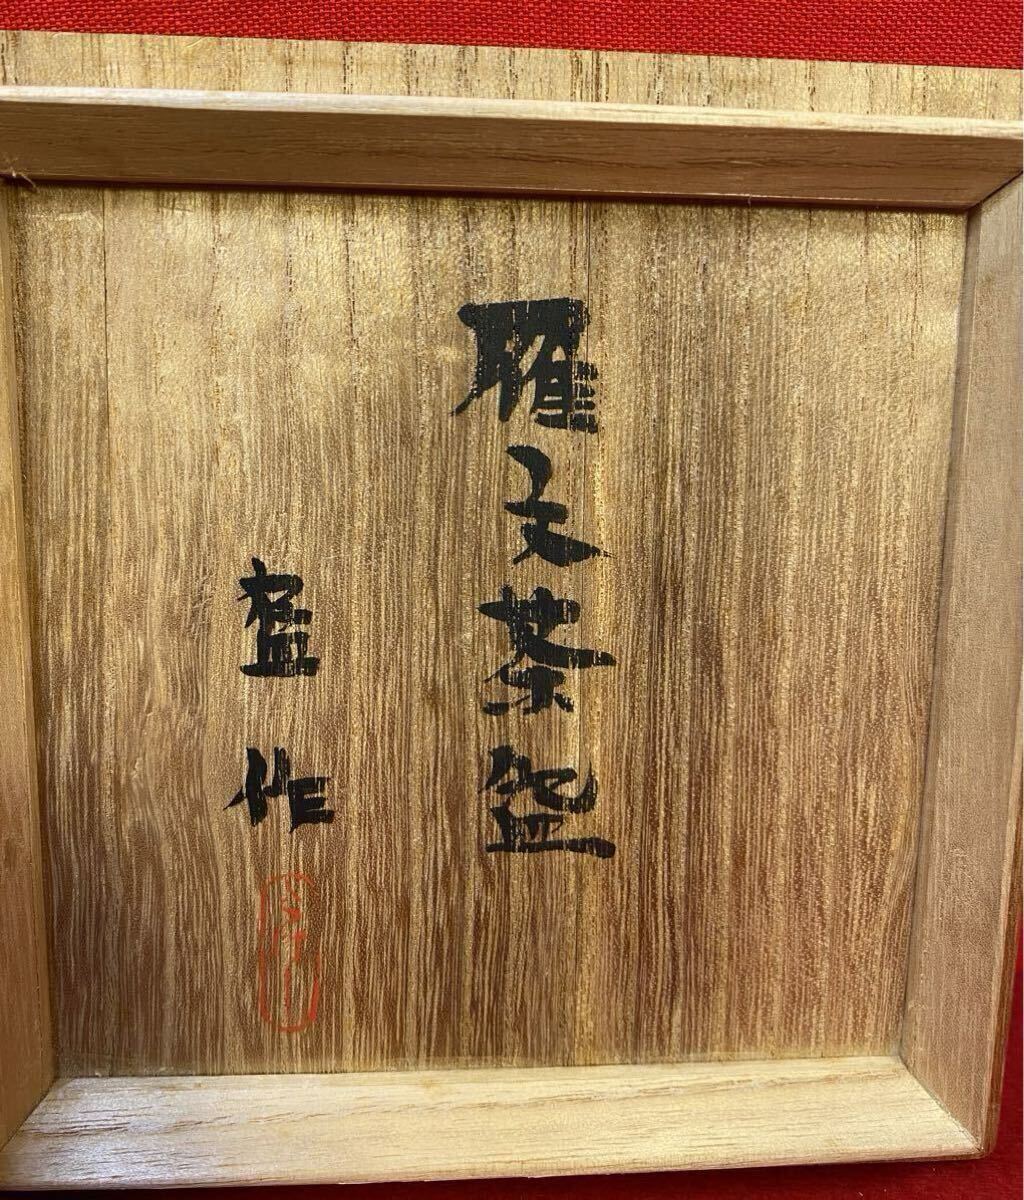 雁文茶盌
作